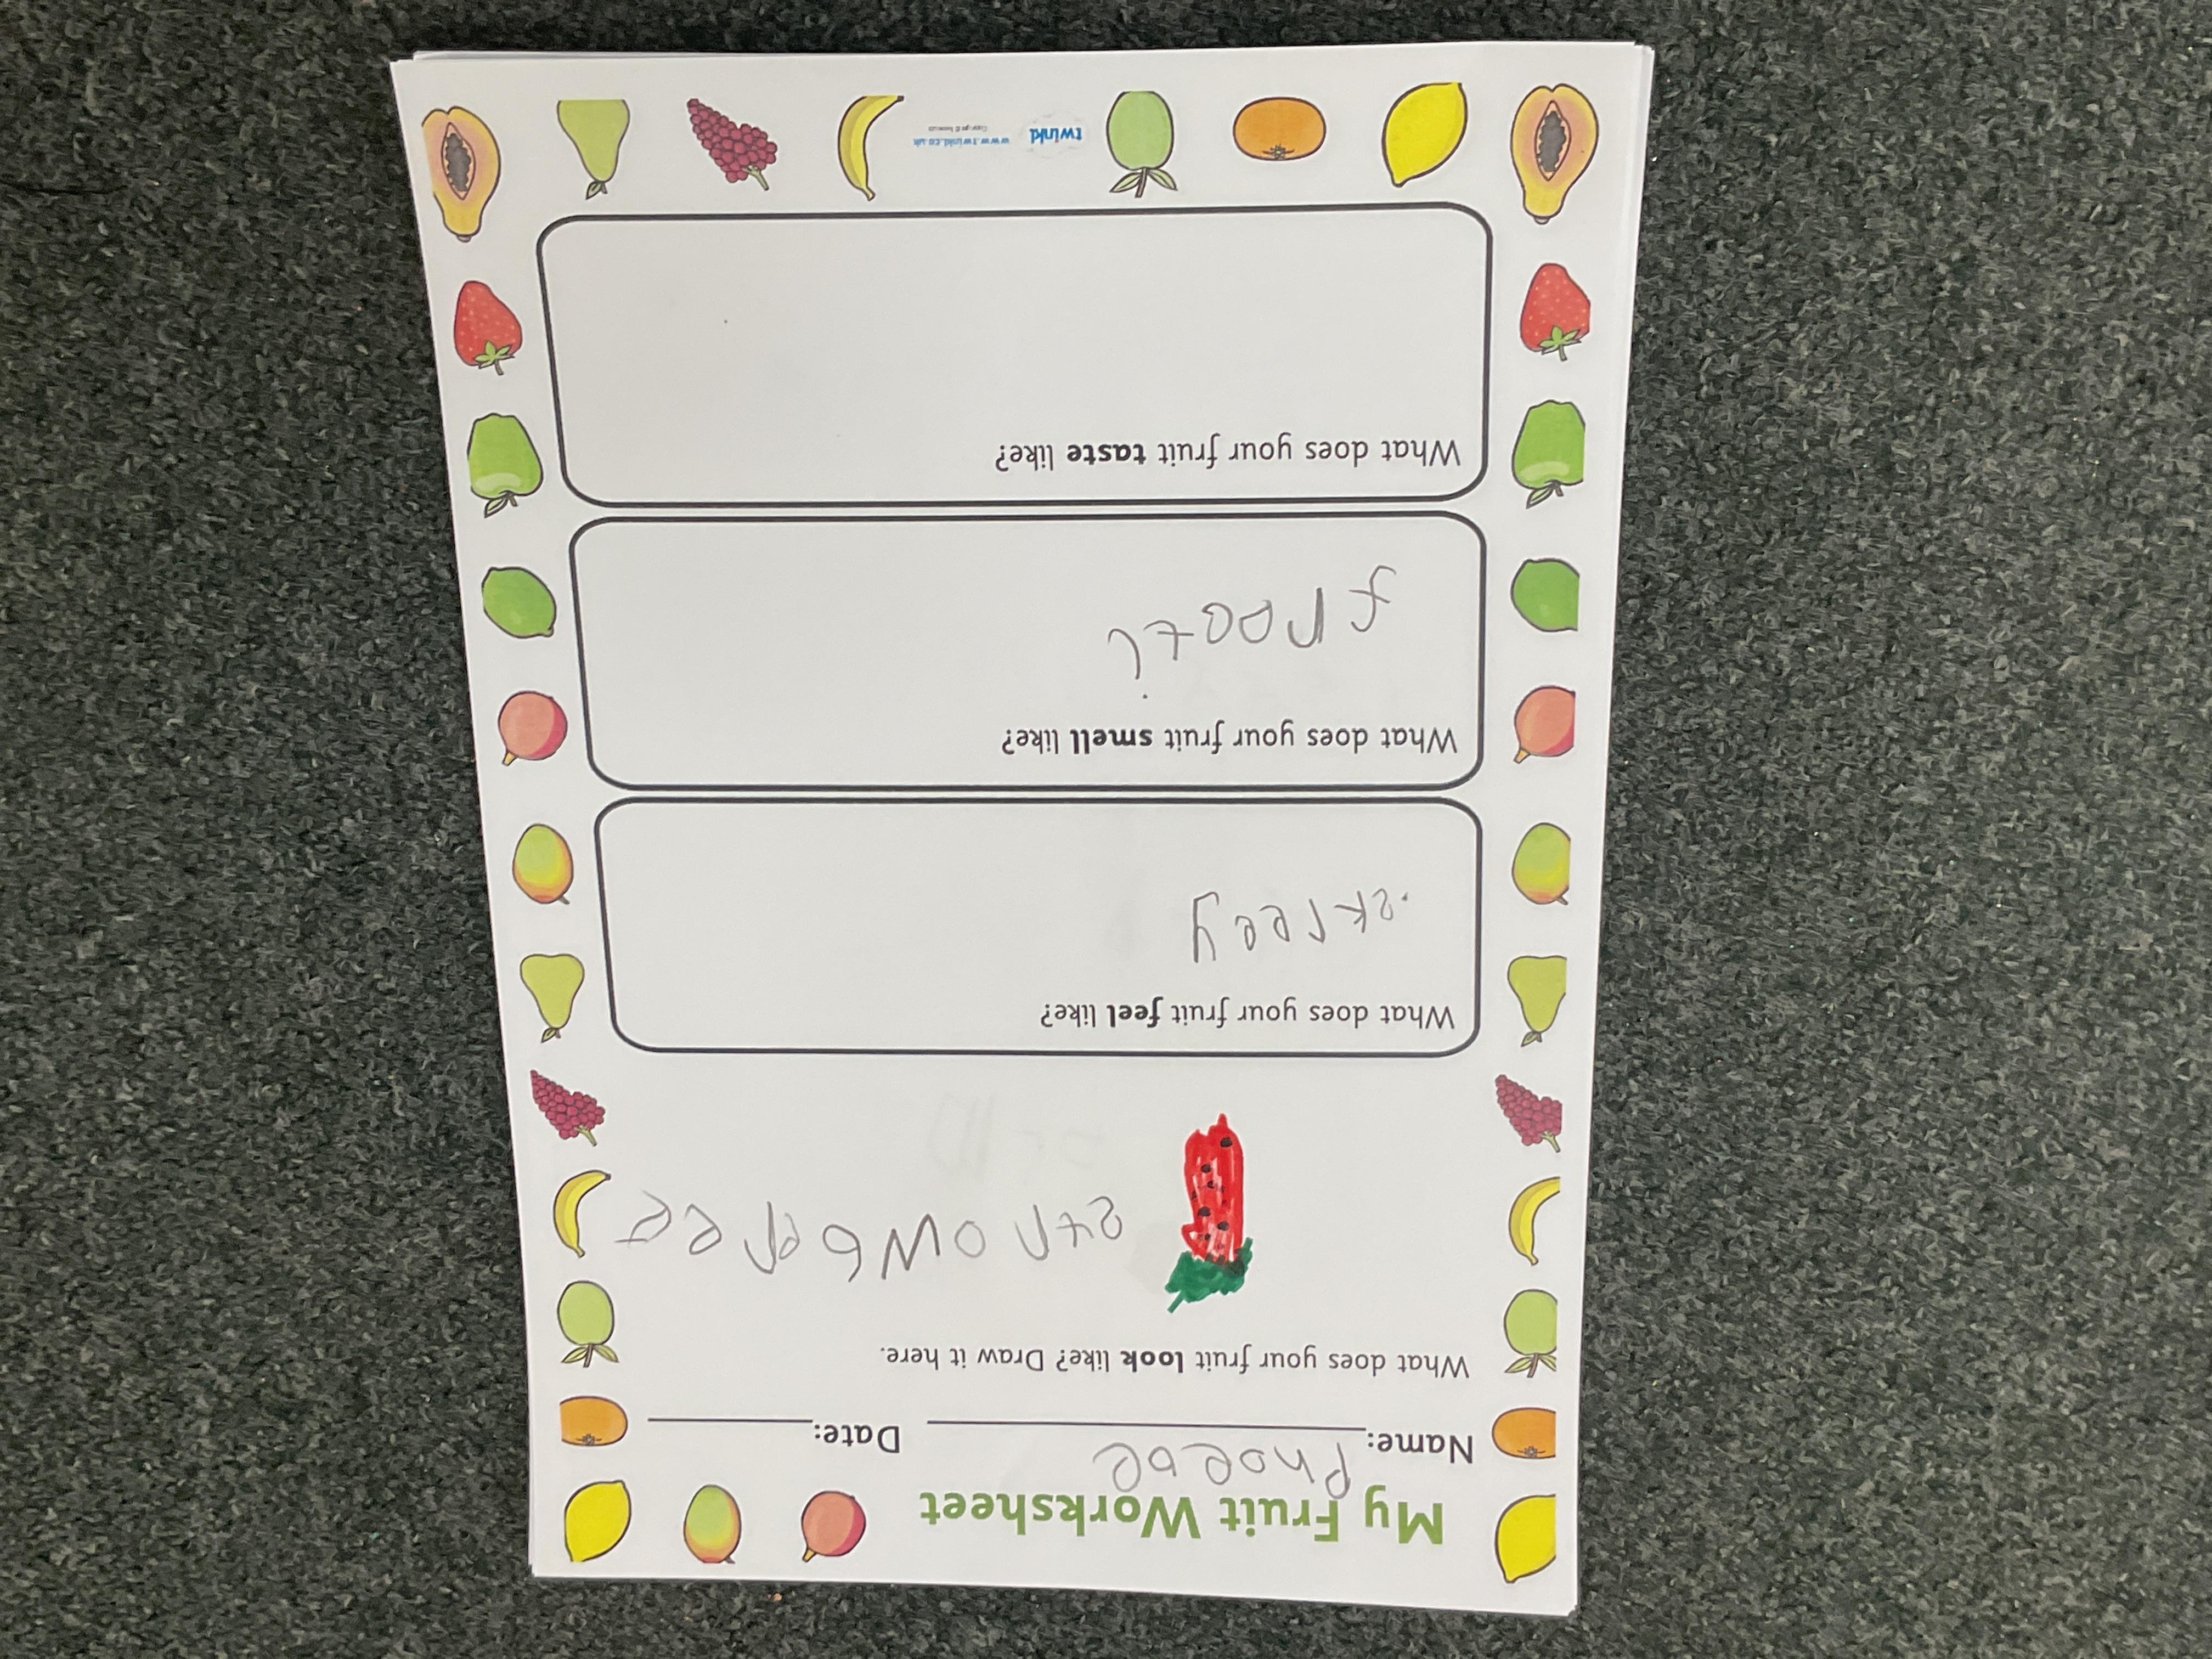 My Fruit Worksheet
Name: Phoebe Date:
What does your fruit look like? Draw it here.
What does your fruit feel like?
What does your fruit smell like?
frooti
What does your fruit taste like?
twinkl www.twinkl.co.uk